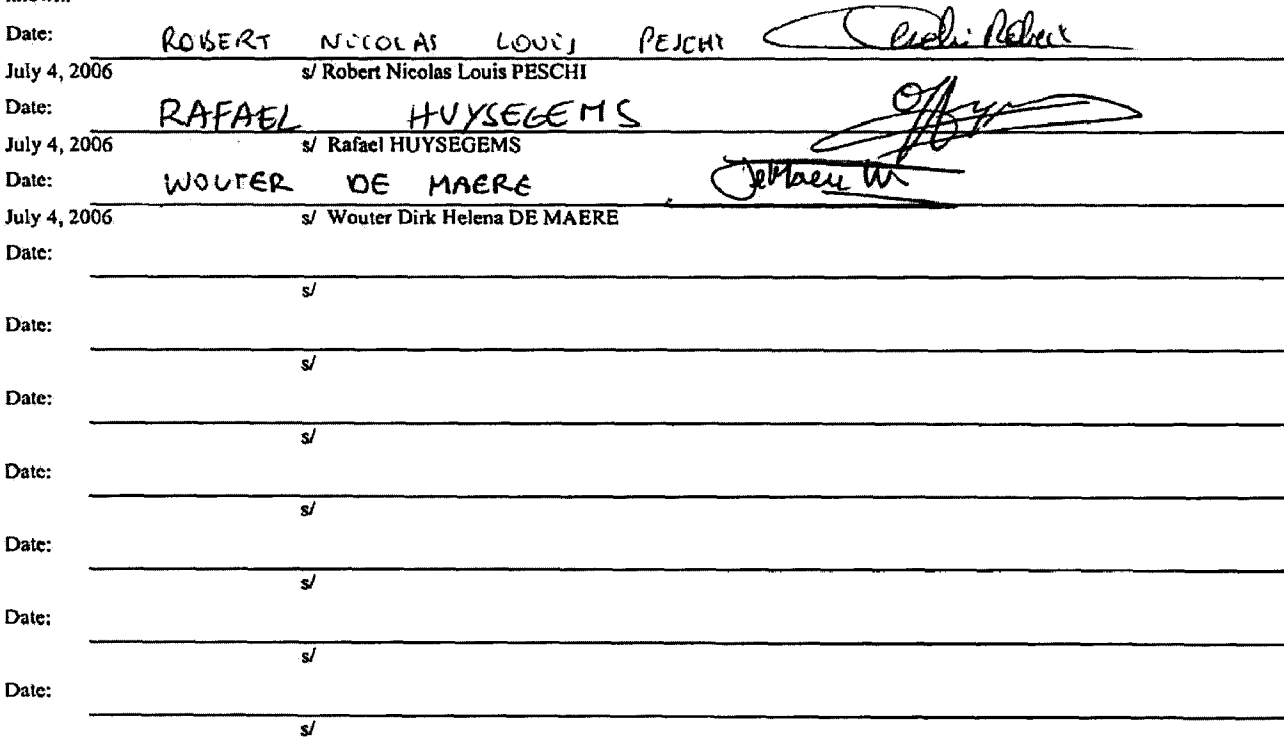 Date: ROBERT NICOLAS LOUIS PESCHI Peschi Robert
July 4, 2006 s/ Robert Nicolas Louis PESCHI
Date: RAFAEL HUYSEGEMS
July 4, 2006 s/ Rafael HUYSEGEMS
Date: WOUTER DE MAERE DeMaere W
July 4, 2006 s/ Wouter Dirk Helena DE MAERE
Date:
s/
Date:
s/
Date:
s/
Date:
s/
Date:
s/
Date:
s/
Date:
s/